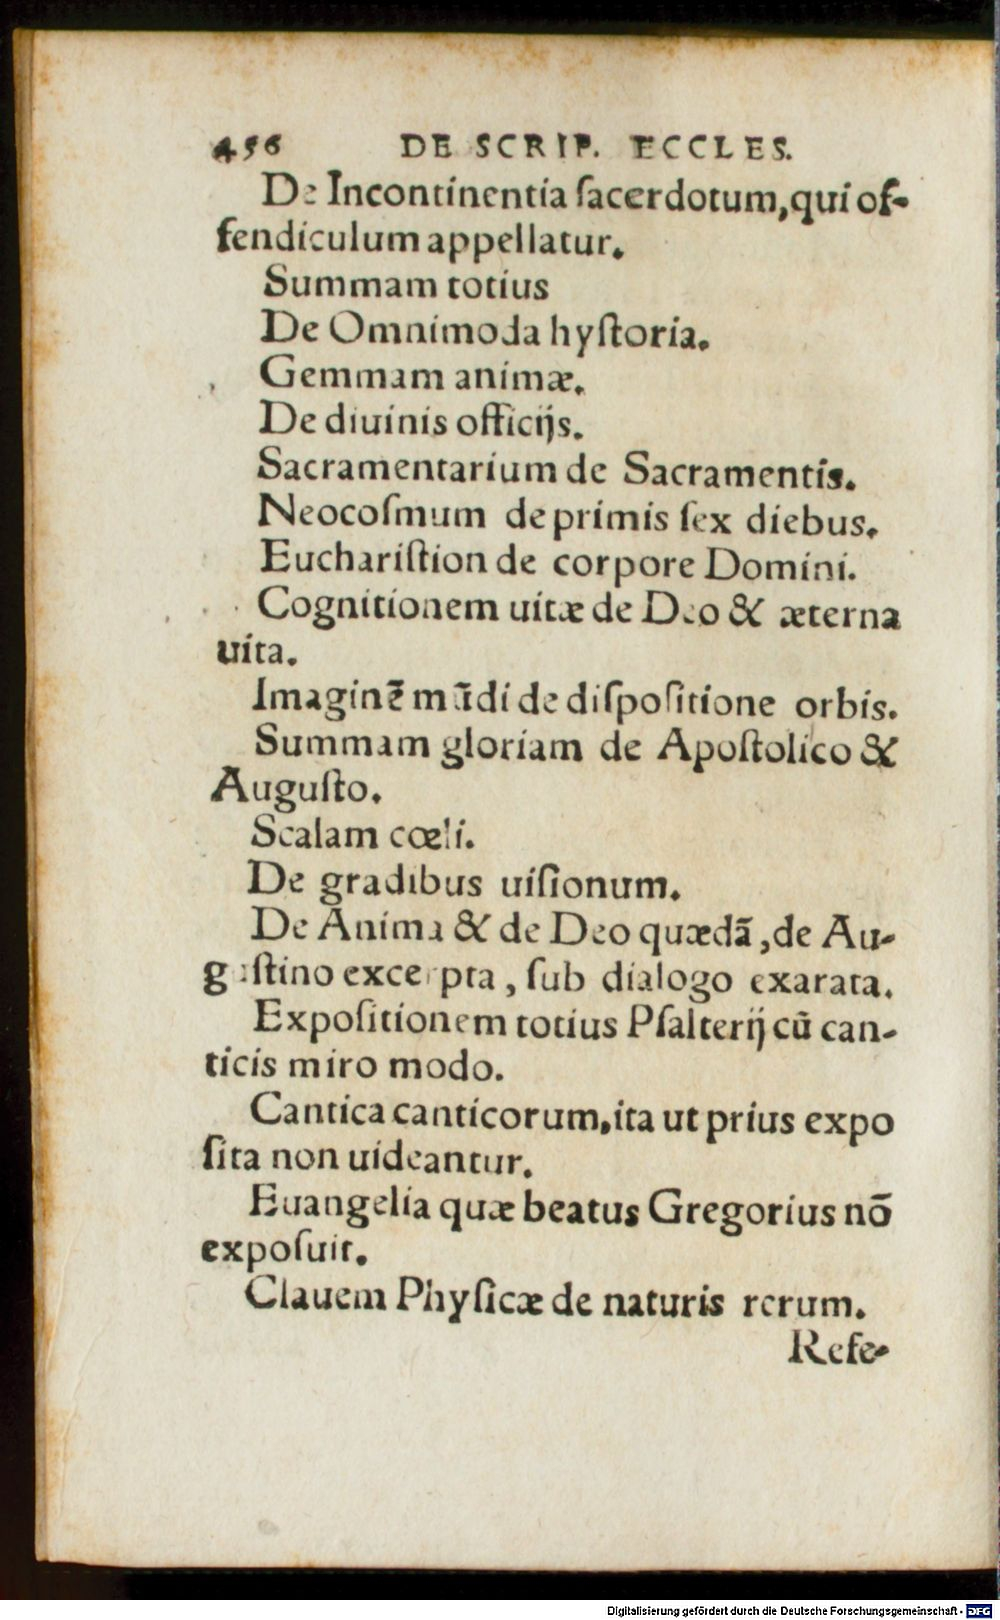 456 DE SCRIP. ECCLES.
De Incontinentia ſacerdotum, qui of-
fendiculum appellatur.
Summam totius
De Omnimoda hyſtoria.
Gemmam animæ.
De diuinis officijs.
Sacramentarium de Sacramentis.
Neocoſmum de primis ſex diebus.
Euchariſtion de corpore Domini.
Cognitionem uitæ de Deo & æterna
uita.
Imaginẽ mũdi de diſpoſitione orbis.
Summam gloriam de Apoſtolico &
Auguſto.
Scalam cœli.
De gradibus uiſionum.
De Anima & de Deo quædã, de Au-
guſtino excerpta, ſub dialogo exarata.
Expoſitionem totius Pſalterij cũ can-
ticis miro modo.
Cantica canticorum, ita ut prius expo
ſita non uideantur.
Euangelia quæ beatus Gregorius nõ
expoſuit.
Clauem Phyſicæ de naturis rerum.
Refe-
Digitalisierung gefördert durch die Deutsche Forschungsgemeinschaft - DFG